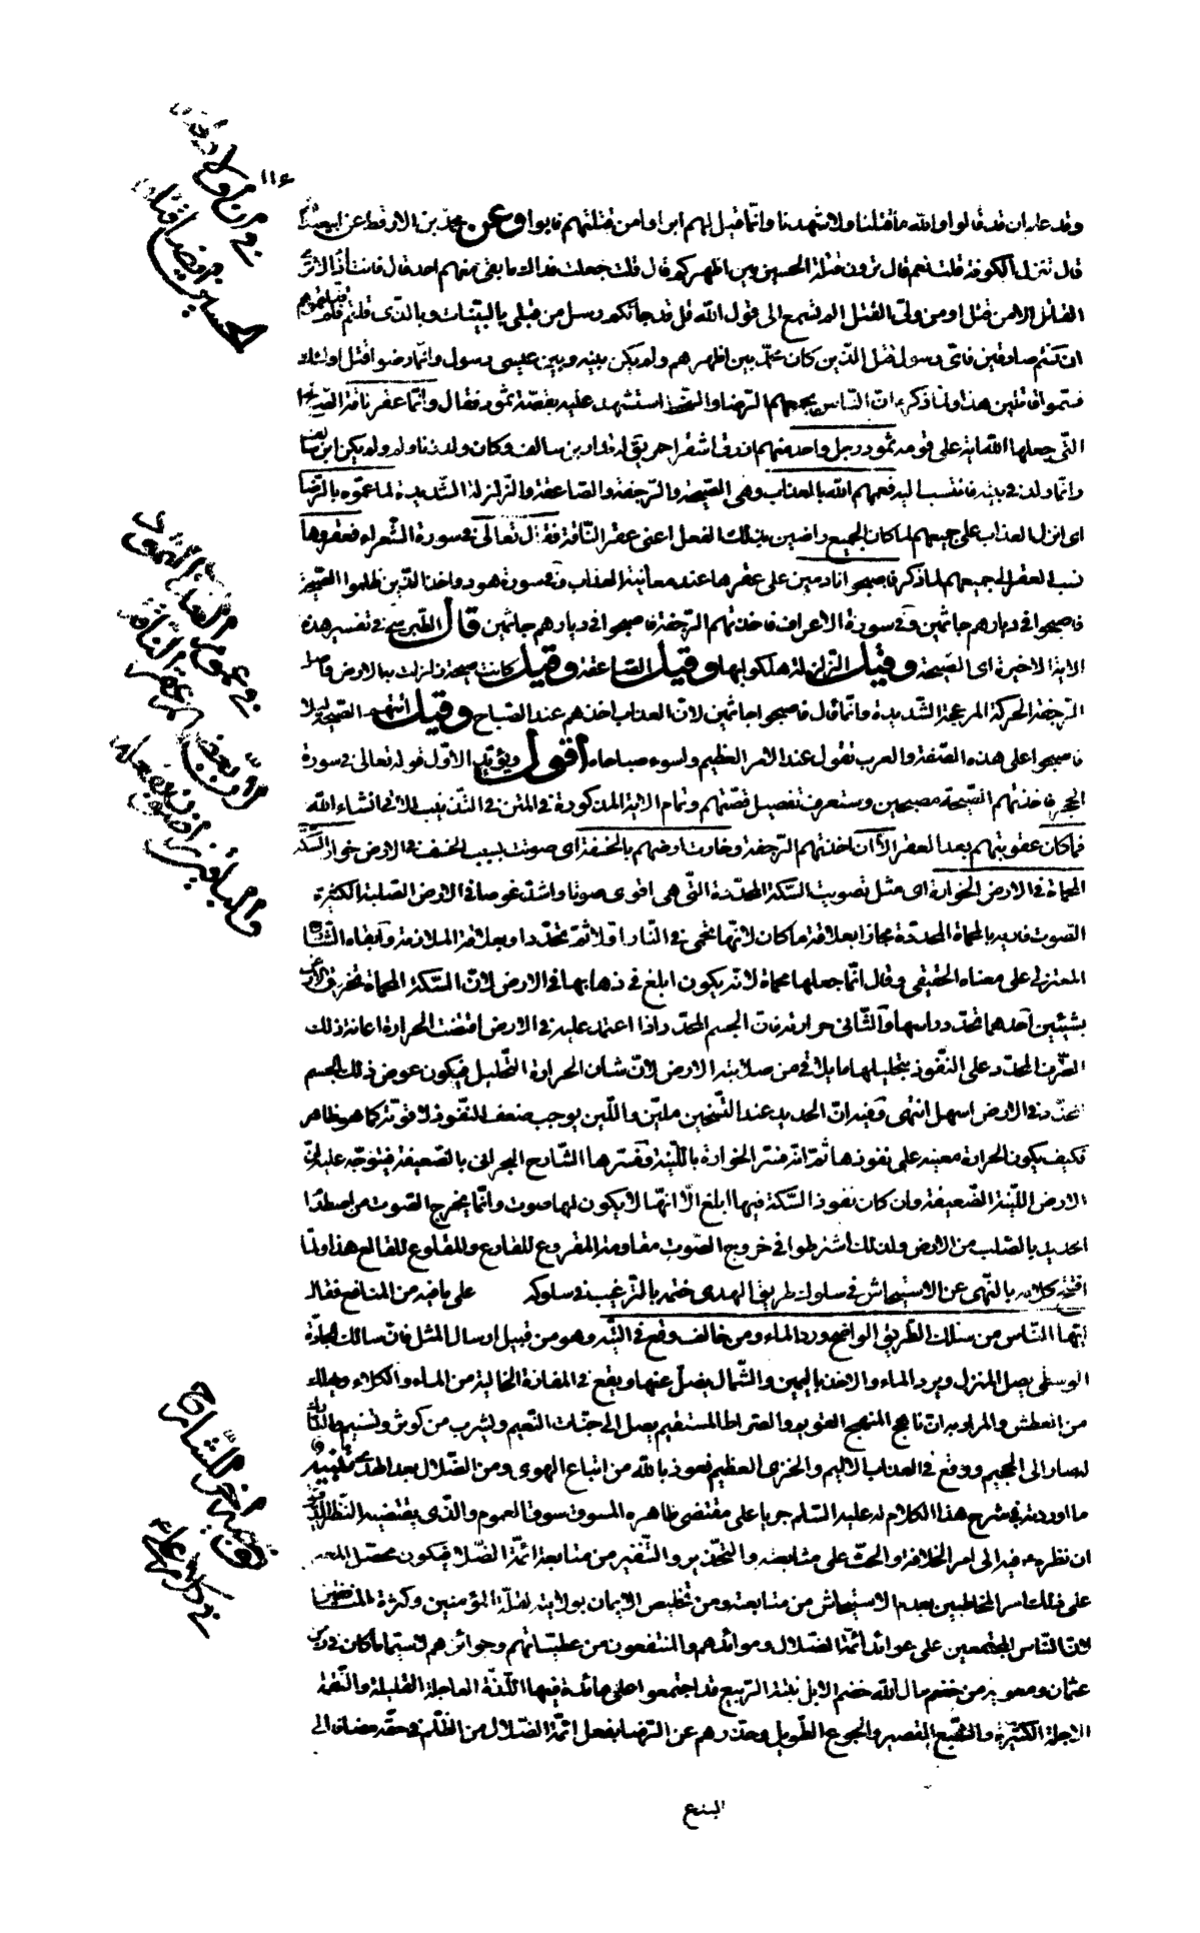 ١١٤
وقد علم ان قد قالوا والله ما قتلنا ولا شهدنا وانّما قيل لهم ابرؤا من قتلتهم فابوا وعن محمّد بن الارقط عن ابيعبد الله
قال تنزل الكوفة قلت نعم قال ترون قتلة الحسين بين اظهركم قال قلت جعلت فداك ما بقى منهم احد قال فانت اذا لا ترى
القاتل الا من قتل او من ولّى القتل الم تسمع الى قول الله قل قد جائكم رسل من قبلى بالبيّنات وبالّذى قلتم فلم قتلتموهم
ان كنتم صادقين فاىّ رسول قتل الّذين كان محمّد بين اظهرهم ولم يكن بينه وبين عيسى رسول وانّما رضوا قتل اولئك
فسمّوا قاتلين هذا ولمّا ذكر انّ النّاس يجمعهم الرّضا والسّخط استشهد عليه بقصّة ثمود فقال وانّما عقر ناقة
الّتى جعلها الله اية على قومه ثمود رجل واحد منهم ازرق اشقر احمر يق له قدار بن سالف وكان ولد زنا ولم يكن ابن
وانّما ولد فى بيته فانتسب اليه فعمّهم الله بالعذاب وهى الصّيحة والرّجفة والصّاعقة والزّلزلة الشّديدة لما عمّوه بالرّضا
اى انزل العذاب على جميعهم لما كان الجميع راضين بذلك الفعل اعنى عقر النّاقة فقال تعالى فى سورة الشّعراء فعقروها
نسب العقر الى جميعهم لما ذكر فاصبحوا نادمين على عقرها عند معاينة العذاب وفى سورة هود واخذ الّذين ظلموا الصّيحة
فاصبحوا فى ديارهم جاثمين وفى سورة الاعراف فاخذتهم الرّجفة فاصبحوا فى ديارهم جاثمين قال الطّبرسى فى تفسير هذه
الاية الاخيرة اى الصّيحة وقيل الزلزلة هلكوا بها وقيل الصّاعقة وقيل كانت صيحة زلزلت بها الارض
الرّجفة الحركة المزعجة الشّديدة وانّما قال فاصبحوا جاثمين لانّ العذاب اخذهم عند الصّباح وقيل اتتهم الصّيحة ليلا
فاصبحوا على هذه الصّفة والعرب تقول عند الامر العظيم واسوء صباحاه اقول ويؤيّد الاوّل قوله تعالى فى سورة
الحجر فاخذتهم الصّيحة مصبحين وستعرف تفصيل قصّتهم وتمام الاية المذكورة فى المتن فى التّذنيب الاتى انشاء الله
فما كان عقوبتهم بعد العقر الّا ان اخذتهم الرّجفة وخارت ارضهم بالخسفة اى صوتت بسبب الخسف فى الارض خوار السّكّة
المحماة فى الارض الخوارة اى مثل تصويت السّكة المحدّدة الّتى هى اقوى صوتا واشدّ غوصا فى الارض الصّلبة الكثيرة
الصّوت فاريد بالمحماة المحدّدة مجازا بعلاقة ما كان لانّها تحمى فى النّار اوّلا ثمّ تحدّد او بعلاقة الملازمة وابقاه الشّارح
المعتزلى على معناه الحقيقى وقال انّما جعلها محماة لانّه يكون ابلغ فى ذهابها فى الارض لانّ السّكة المحماة تخرق الارض
بشيئين احدهما تحدّد راسها والثّانى حرارته فانّ الجسم المحدّد اذا اعتمد عليه فى الارض اقتضت الحرارة اعانة ذلك
الطّرف المحدّد على النّفوذ بتحليلها ما يلاقى من صلابة الارض لانّ شان الحرارة التّحليل فيكون غوص ذلك الجسم
المحدّد فى الارض اسهل انتهى وفيه انّ الحديد عند التّسخين ملين واللّين يوجب ضعف النّفوذ لا قوّته كما هو ظاهر
فكيف يكون الحرارة معينة على نفوذها ثمّ انّه فسّر الخوارة باللّينة وفسّرها الشّارح البحرانى بالضّعيفة فيتوجّه عليه انّ
الارض اللّينة الضّعيفة وان كان نفوذ السّكة فيها ابلغ الّا انّها لا يكون لها صوت وانّما يخرج الصّوت من اصطدام
الحديد بالصّلب من الارض ولذلك اشترطوا فى خروج الصّوت مقاومة المقروع للقارع والمقلوع للقالع هذا ولمّا
افتتح كلامه بالنّهى عن الاستيحاش فى سلوك طريق الهدى ختمه بالتّرغيب فى سلوكه على ما فيه من المنافع فقال
ايّها النّاس من سلك الطّريق الواضح ورد الماء ومن خالف وقع فى التّيه وهو من قبيل ارسال المثل فانّ سالك الجادّة
الوسطى يصل المنزل ويرد الماء والاخذ باليمين والشّمال يضلّ عنها ويقع فى المفازة الخالية من الماء والكلاء ويهلك
من العطش والمراد به انّ ناهج المنهج القويم والصراط المستقيم يصل الى جنّات النّعيم ويشرب من كوثر وتسنيم
لصار الى الجحيم ووقع فى العذاب الاليم والخزى العظيم نعوذ بالله من اتباع الهوى ومن الضّلال بعد الهدى
ما اوردته فى شرح هذا الكلام له عليه السّلم جريا على مقتضى ظاهره المسوق سوق العموم والّذى يقتضيه النّظر الدّقيق
ان نظره فيه الى امر الخلافة والحثّ على متابعته والتّحذير والتّنفير من متابعة ائمّة الضّلال فيكون محصّل
على ذلك امر المخاطبين بعدم الاستيحاش من متابعته ومن تخليص الايمان بولايته لقلّة المؤمنين وكثرة
لانّ النّاس المجتمعين على عوائد ائمّة الضّلال وموائدهم والمنتفعون من عطيّاتهم وجوائزهم لاسيّما ما كان فى
عثمان ومعوية من خضم مال الله خضم الابل نبتة الرّبيع قد اجتمعوا على مائدة فيها اللّذّة العاجلة القليلة والنّقمة
الاجلة الكثيرة والشّبع القصير والجوع الطّويل وحذّرهم عن الرّضا بفعل ائمّة الضّلال من الظّلم فى حقّه مضافا الى